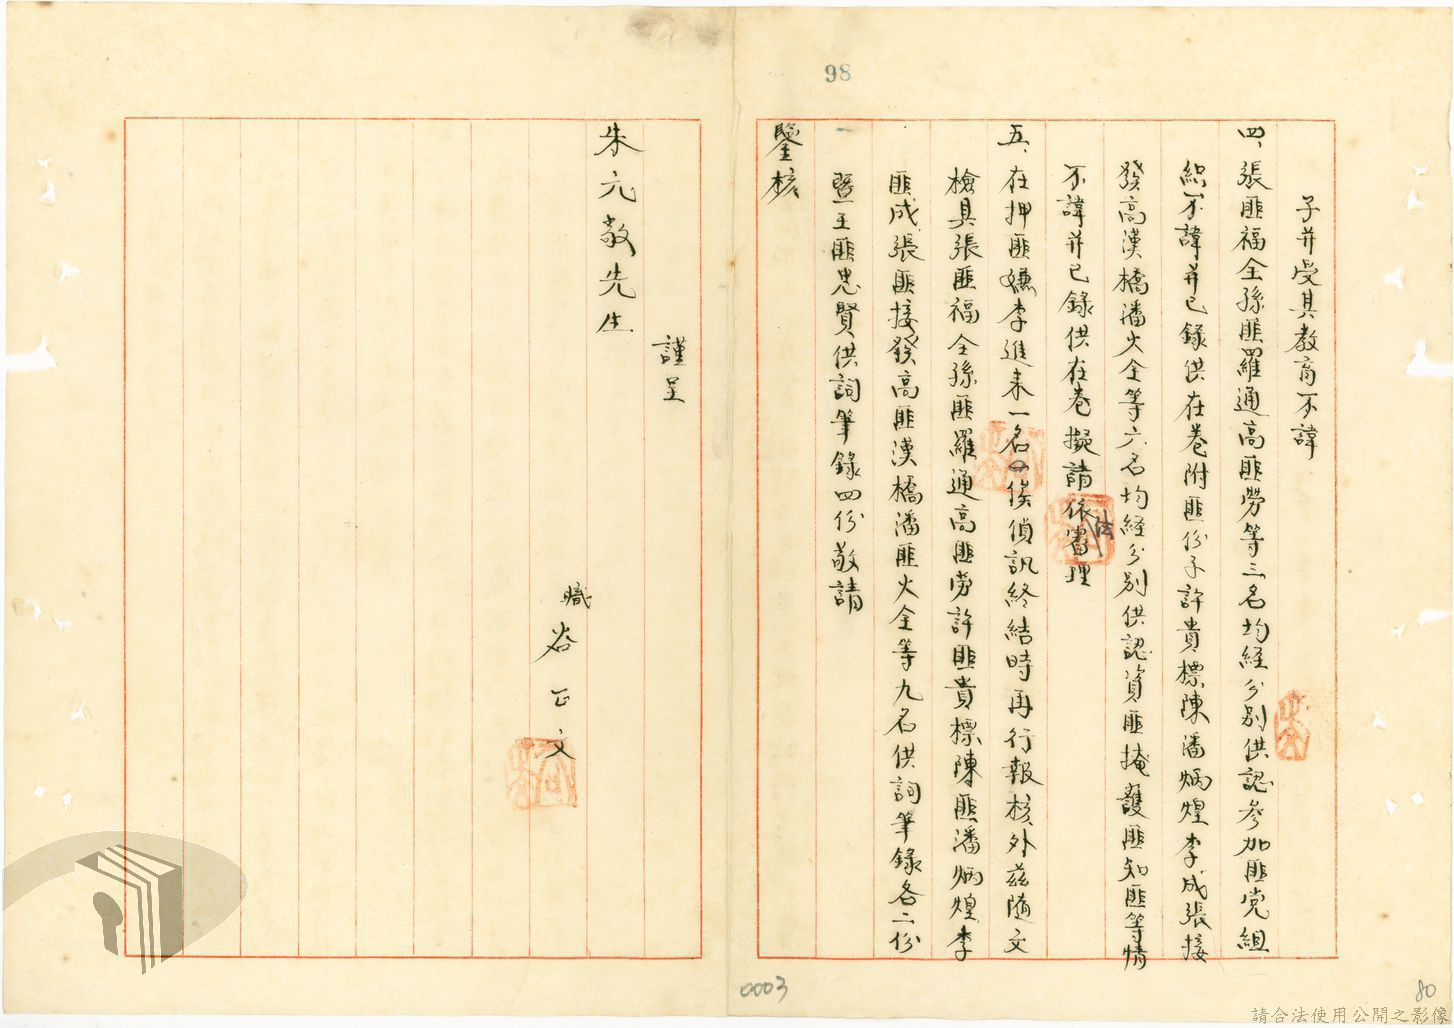 98
子并受其教育不諱
四、張匪福全孫匪羅通高匪勞等三名均經分別供認參加匪党組
織不諱并已錄供在卷附匪份子許貴標陳潘炳煌李成張接
發高漢橋潘火全等六名均経分別供認資匪掩護匪知匪等情
不諱并已錄供在卷擬請依法審理
五、在押匪嫌李進來一名俟偵訊終結時再行報核外茲隨文
檢具張匪福全孫匪羅通高匪勞許匪貴標陳匪潘炳煌李
匪成張匪接發高匪漢橋潘匪火全等九名供詞筆錄各二份
暨王匪忠賢供詞筆錄四份敬請
鑒核
謹呈
朱元敬先生
職 谷正文
0003
80
請合法使用公開之影像